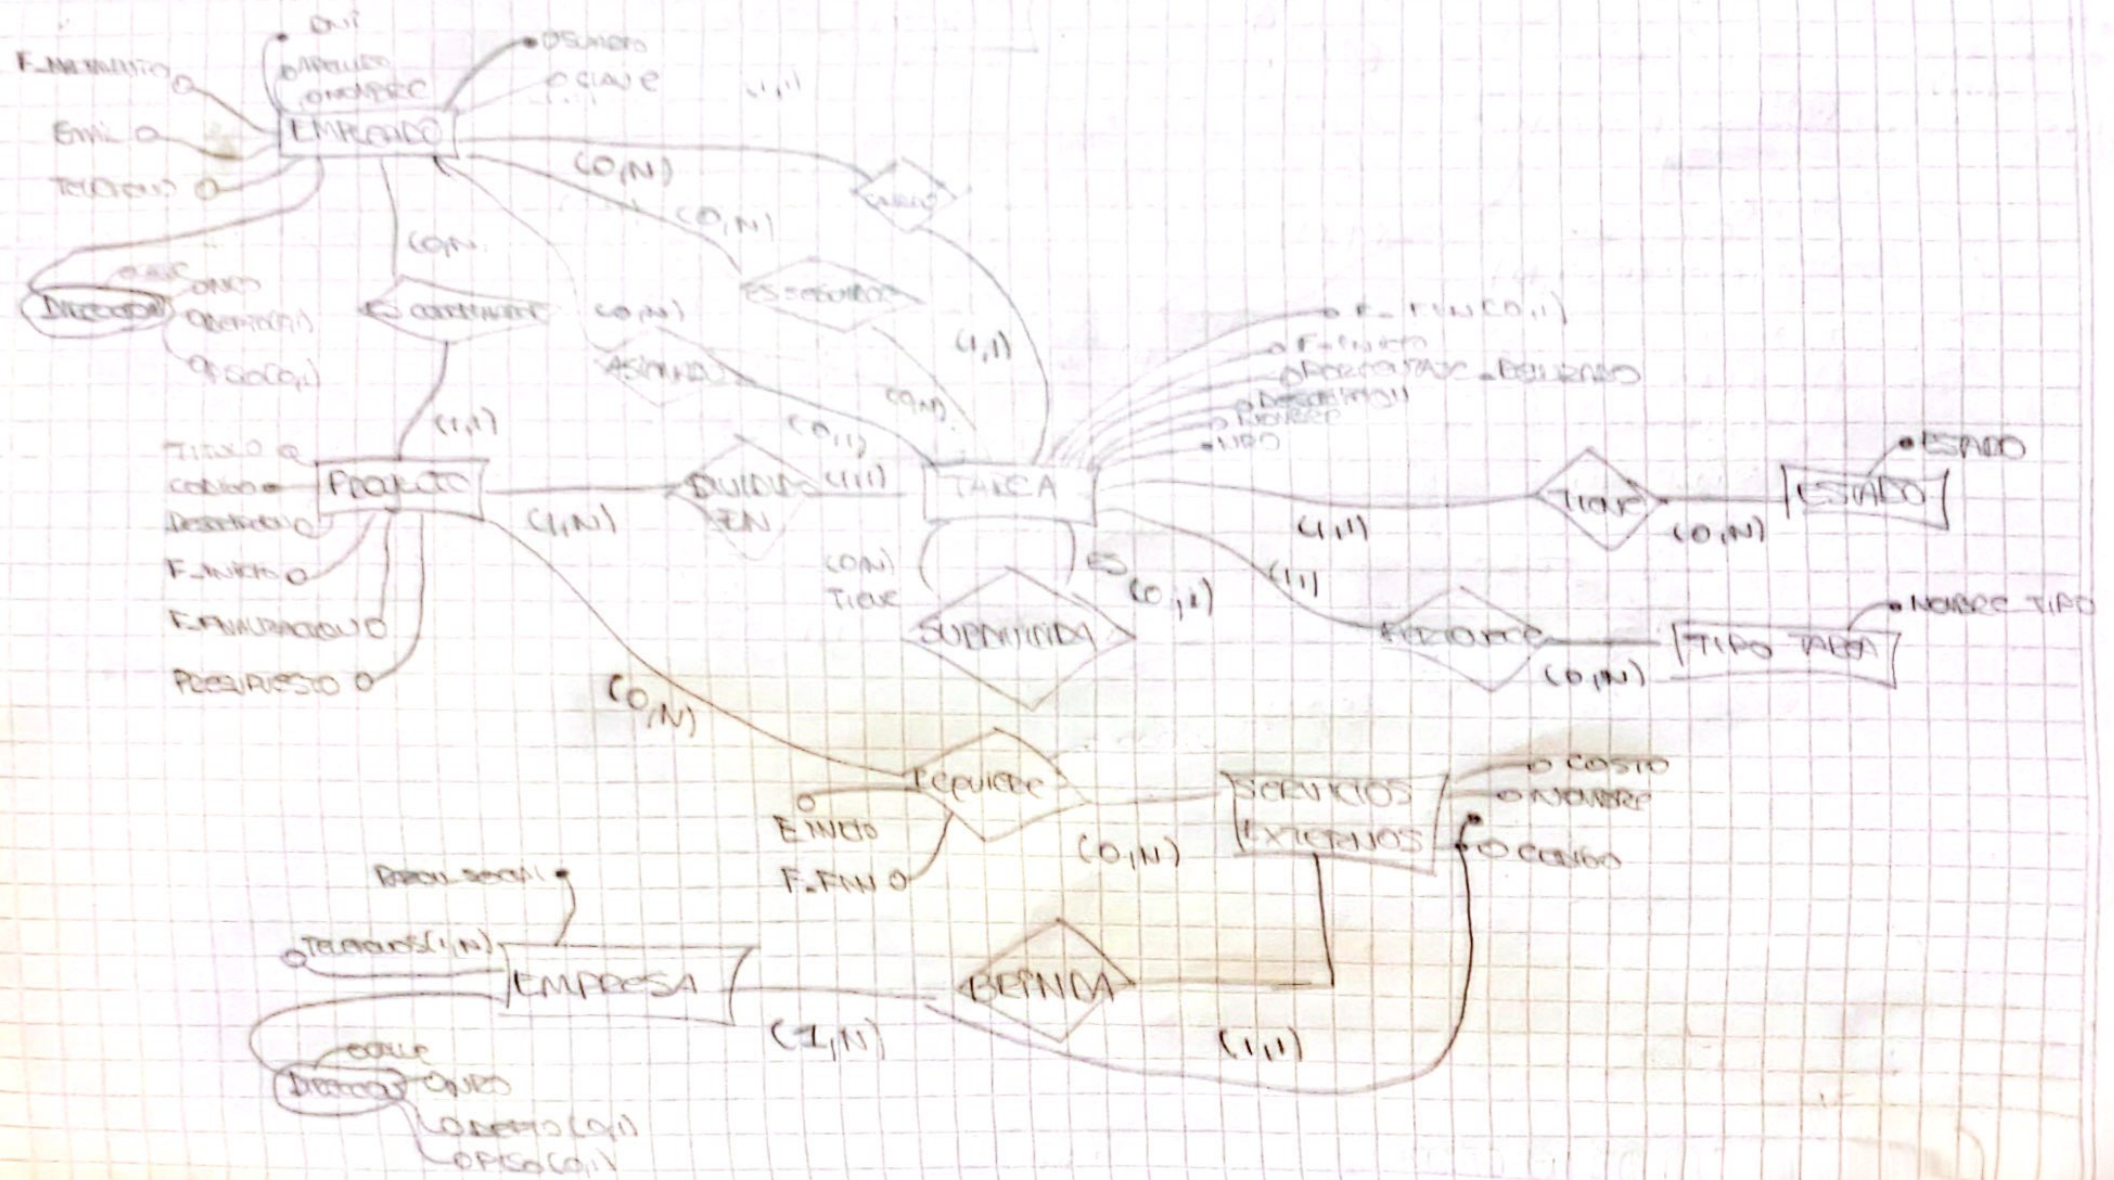 DNI
F_NACIMIENTO
APELLIDO
NOMBRE
CLAVE
(1,1)
EMPLEADO
EMAIL
(0,N)
TELEFONO
(0,N)
(0,N
DIRECCION
NRO
DEPTO(0,1)
PISO(0,1)
(0,N)
ES SEGUIDOR
ASIGNADA
(1,1)
F_FIN(0,1)
F_INICIO
PORCENTAJE_REALIZADO
DESCRIPCION
NOMBRE
NRO
(0,N)
(1,1)
(0,1)
TITULO
CODIGO
DESCRIPCION
F_INICIO
F_FINALIZACION
PRESUPUESTO
PROYECTO
(1,N)
DIVIDIDA
EN
(1,1)
TAREA
(1,1)
TIENE
(0,N)
ESTADO
ESTADO
(0,N)
TIENE
ES
(0,1)
SUBDIVIDIDA
(1,1)
PERTENECE
(0,N)
TIPO TAREA
NOMBRE TIPO
(0,N)
REQUIERE
F_INICIO
F_FIN
(0,N)
SERVICIOS
EXTERNOS
COSTO
NOMBRE
CODIGO
RAZON_SOCIAL
TELEFONOS(1,N)
EMPRESA
(1,N)
BRINDA
(1,1)
CALLE
DIRECCION
NRO
DEPTO(0,1)
PISO(0,1)